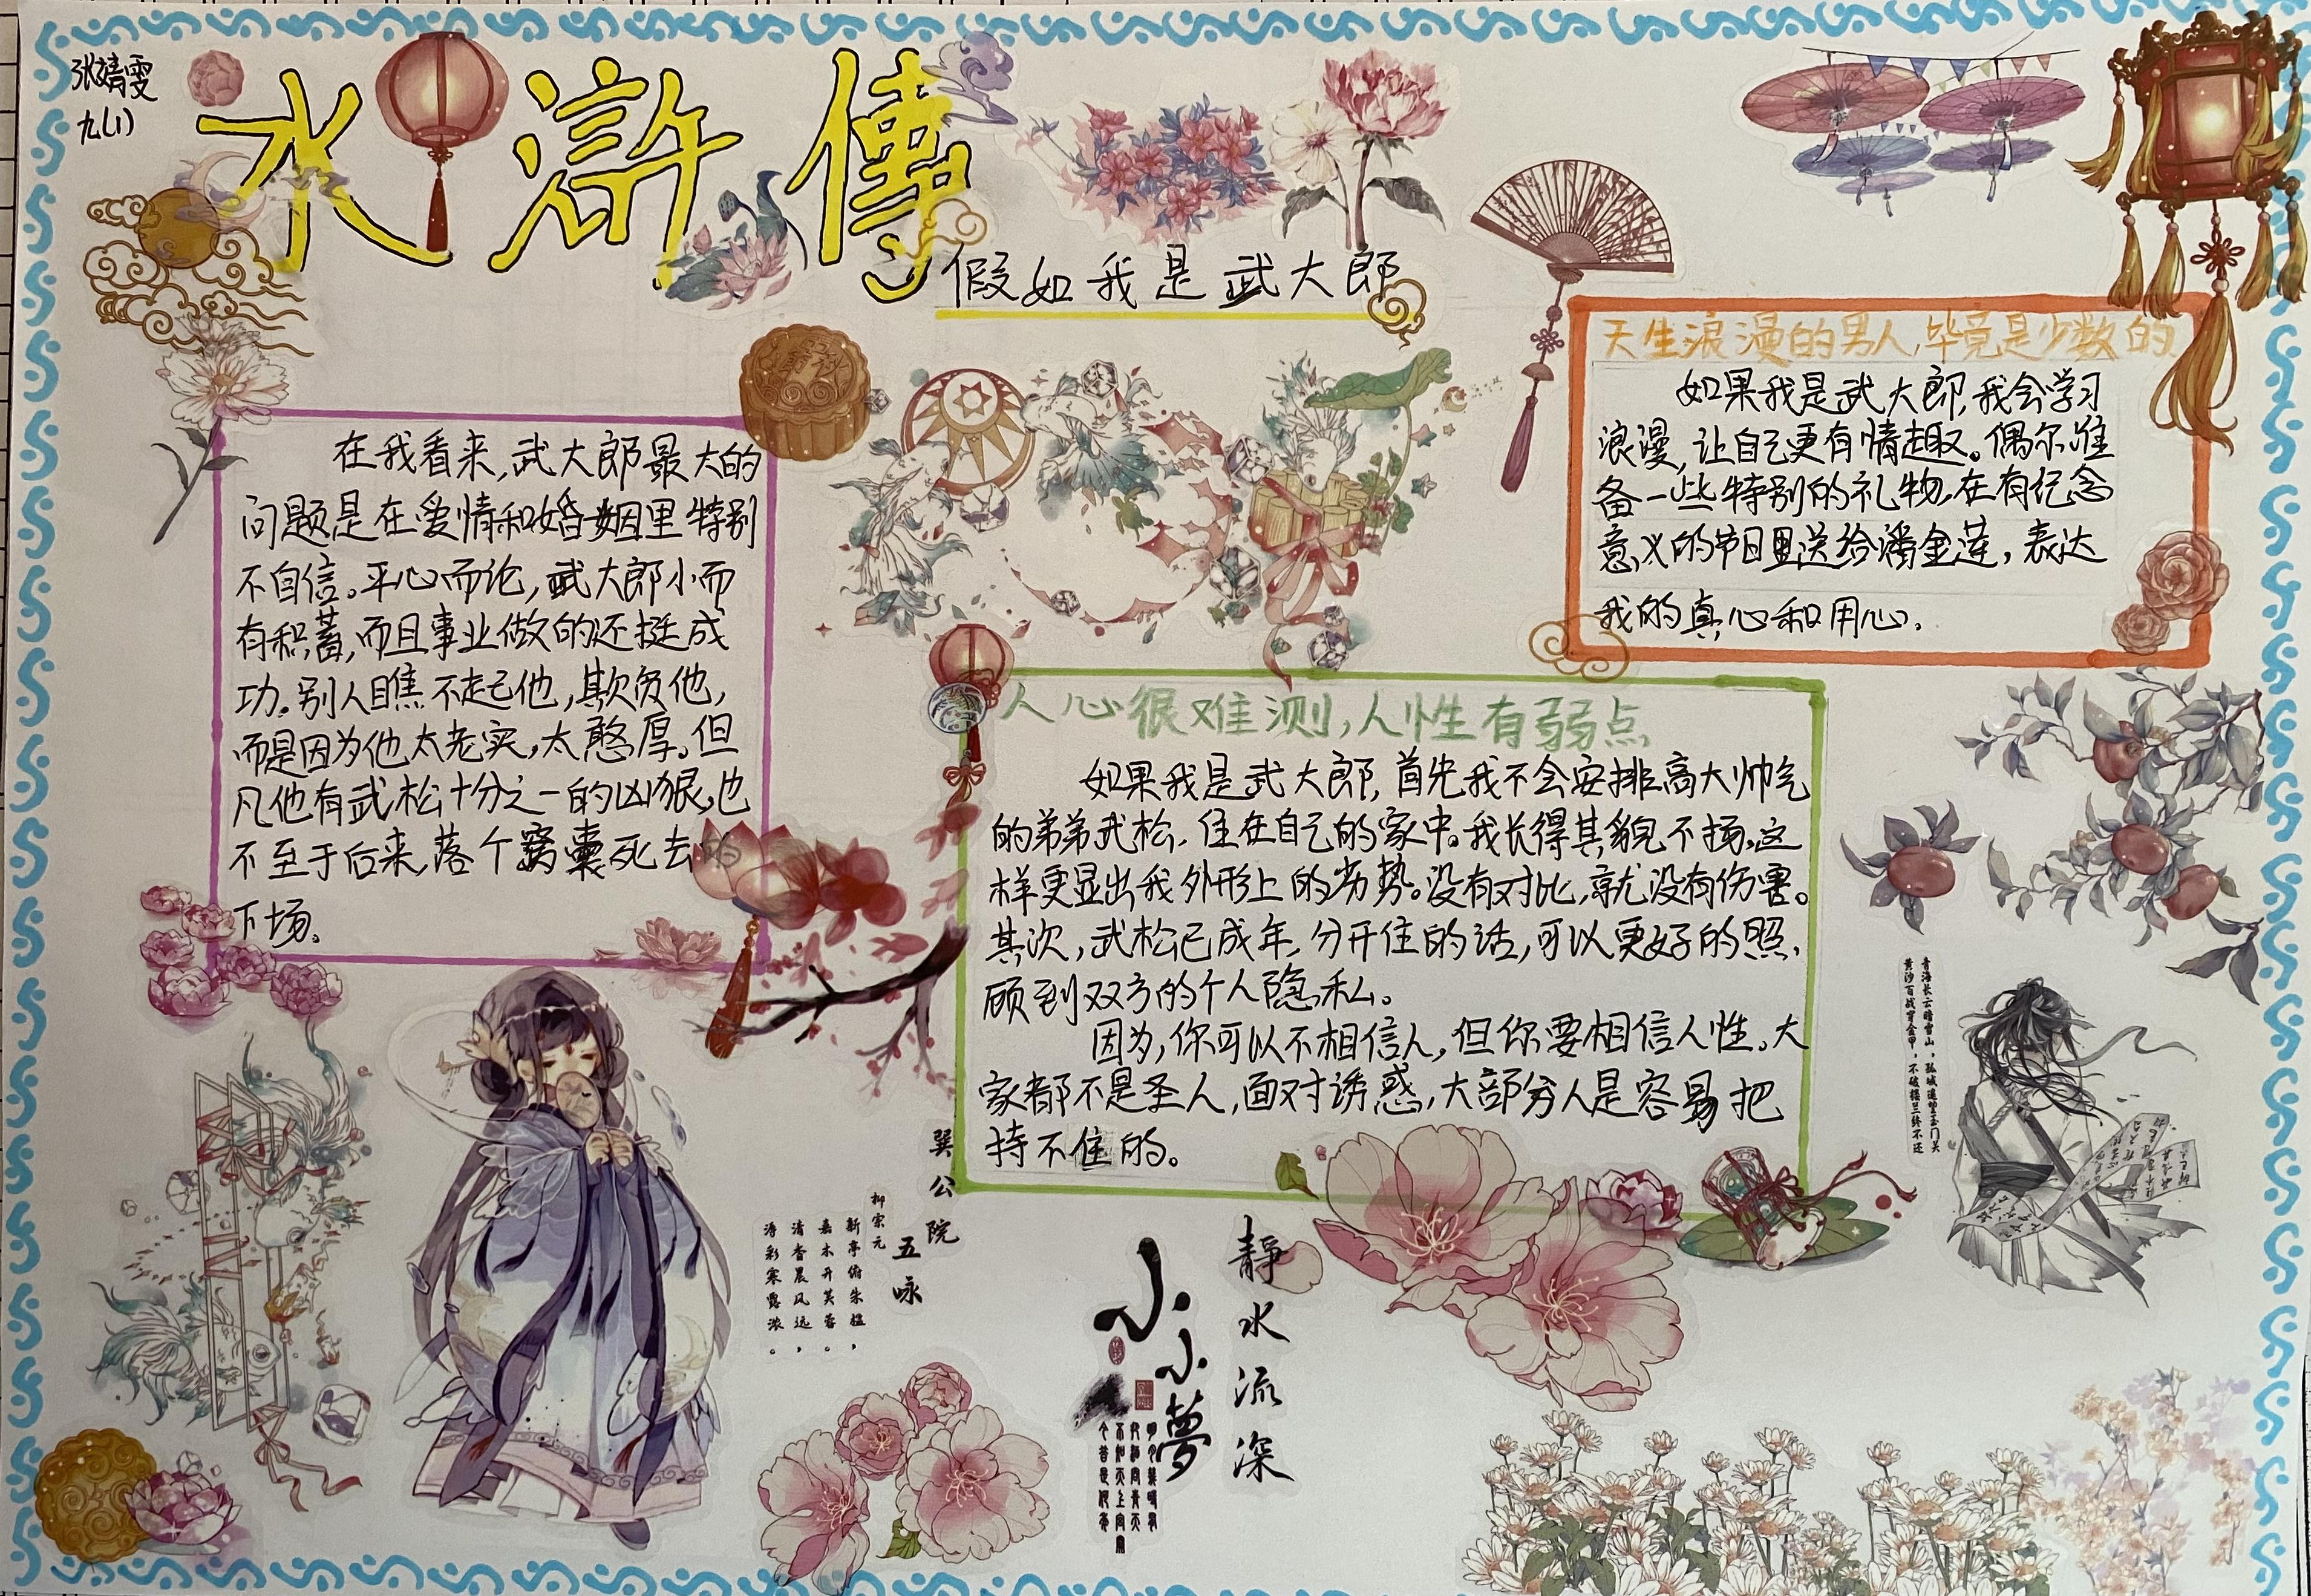 张婧雯
九(1)
水滸傳
假如我是武大郎
在我看来,武大郎最大的
问题是在爱情和婚姻里特别
不自信。平心而论,武大郎小而
有积蓄,而且事业做的还挺成
功。别人瞧不起他,欺负他,
而是因为他太老实,太憨厚。但
凡他有武松十分之一的凶狠,也
不至于后来,落个窝囊死去的
下场。
天生浪漫的男人,毕竟是少数的
如果我是武大郎,我会学习
浪漫,让自己更有情趣。偶尔准
备一些特别的礼物,在有纪念
意义的节日里送给潘金莲,表达
我的真心和用心。
人心很难测,人性有弱点
如果我是武大郎,首先我不会安排高大帅气
的弟弟武松,住在自己的家中。我长得其貌不扬,这
样更显出我外形上的劣势。没有对比,就没有伤害。
其次,武松已成年,分开住的话,可以更好的照
顾到双方的个人隐私。
因为,你可以不相信人,但你要相信人性。大
家都不是圣人,面对诱惑,大部分人是容易把
持不住的。
青海长云暗雪山,孤城遥望玉门关
黄沙百战穿金甲,不破楼兰终不还
巽公院
五咏
柳宗元
新亭俯朱槛,
嘉木开芙蓉。
清香晨风远,
溽彩寒露浓。
小小夢
靜水流深